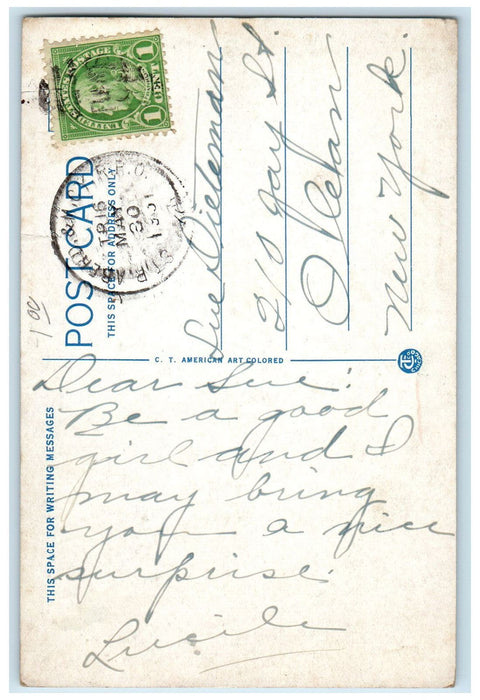 UNITED STATES POSTAGE
1 CENT 1
POST CARD
THIS SPACE FOR ADDRESS ONLY
MAY
30
1931
1 00
Sue Dieleman
210 Gay St.
Olean
New York.
C. T. AMERICAN ART COLORED
THIS SPACE FOR WRITING MESSAGES
Dear Sue:
Be a good
girl and I
may bring
you a nice
surprise.
Lucile